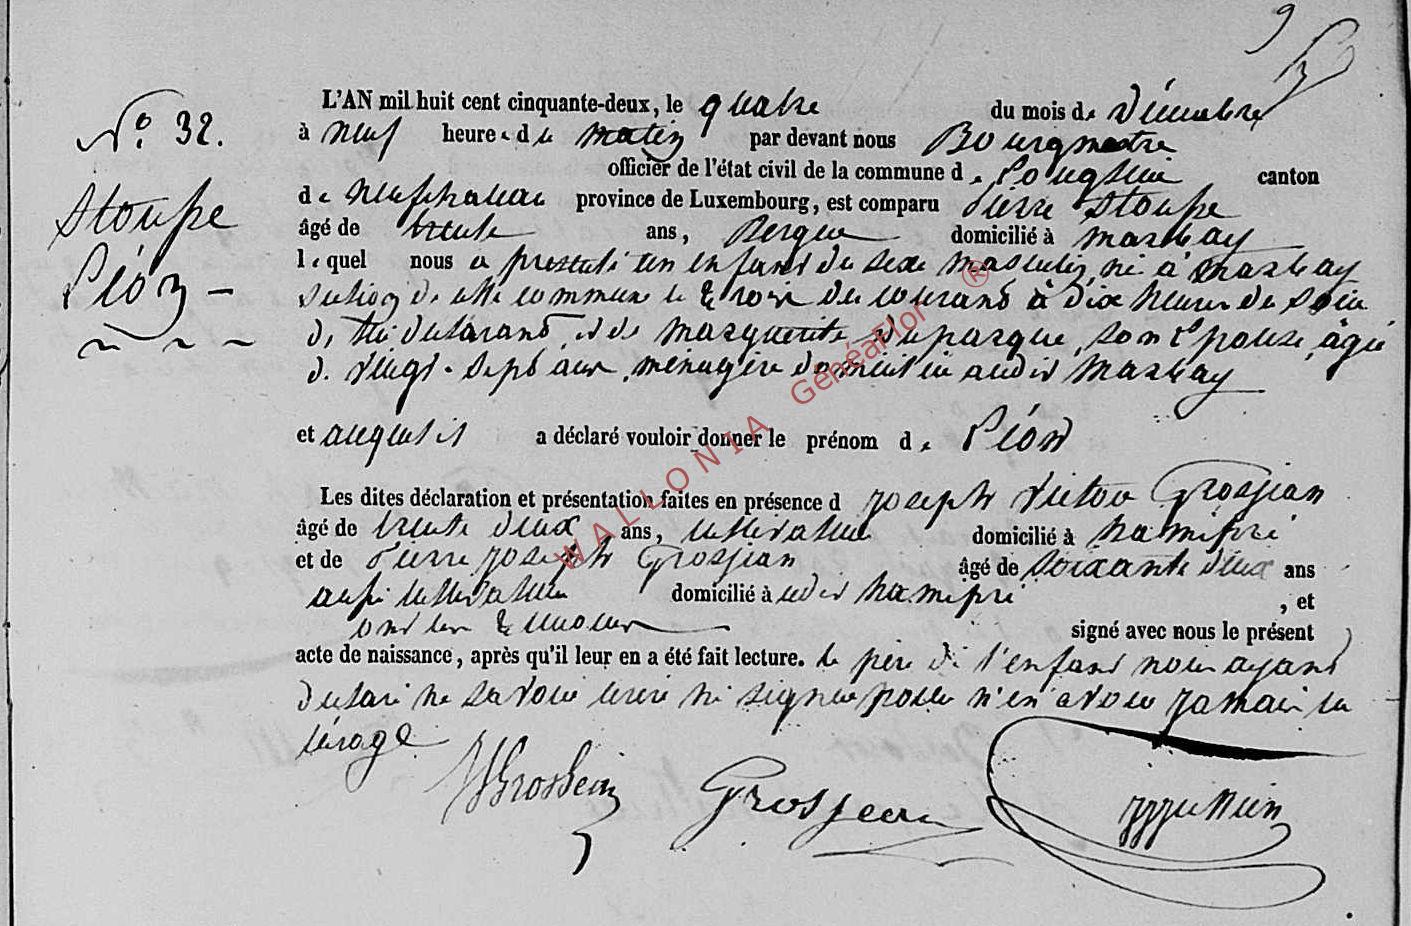 9
N° 32.
Stoupe
Léon
L'AN mil huit cent cinquante-deux, le quatre du mois de décembre
à neuf heures du matin par devant nous Bourgmestre
officier de l'état civil de la commune de Longlier canton
de neufchateau province de Luxembourg, est comparu Pierre Stoupe
âgé de trente ans, Berger domicilié à Massbay
lequel nous a presenté un enfant du sexe masculin, né à Massbay
section de cette commune le trois du courant à dix heures du soir
de lui déclarant, et de Marguerite Duparque, son Epouse, âgée
de vingt-sept ans, ménagère domiciliée audit Massbay
et auquel il a déclaré vouloir donner le prénom de Léon
Les dites déclaration et présentation faites en présence de joseph Victor Grosjean
âgé de trente deux ans, cultivateur domicilié à hamipré
et de Pierre joseph Grosjean âgé de soixante deux ans
aussi cultivateur domicilié audit hamipré, et
ont les témoins signé avec nous le présent
acte de naissance, après qu'il leur en a été fait lecture. le père de l'enfant nous ayant
déclaré ne savoir ecrire ni signer pour n'en avoir jamais eu
l'usage
Grosjean
WALLONIA GénéaFlor ®